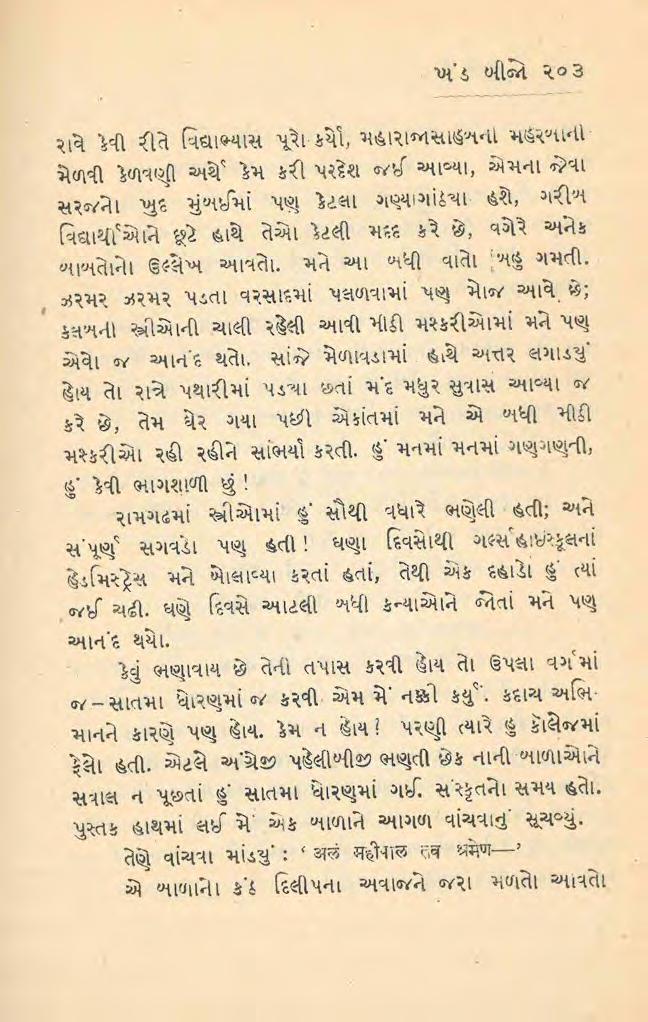 ખંડ બીજો ૨૦૩
રાવે કેવી રીતે વિદ્યાભ્યાસ પૂરો કર્યો, મહારાજાસાહેબના મહેરબાની
મેળવી કેળવણી અર્થે કેમ કરી પરદેશ જઈ આવ્યા, એમના જેવા
સરજનો ખુદ મુંબઈમાં પણ કેટલા ગણ્યાગાંઠયા હશે, ગરીબ
વિદ્યાર્થીઓને છૂટે હાથે તેઓ કેટલી મદદ કરે છે, વગેરે અનેક
બાબતોનો ઉલ્લેખ આવતો. મને આ બધી વાતો બહુ ગમતી.
ઝરમર ઝરમર પડતા વરસાદમાં પલળવામાં પણ મોજ આવે છે;
કલબની સ્ત્રીઓની ચાલી રહેલી આવી મીઠી મશ્કરીઓમાં મને પણ
એવો જ આનંદ થતો. સાંજે મેળાવડામાં હાથે અત્તર લગાડયું
હોય તો રાત્રે પથારીમાં પડયા છતાં મંદ મધુર સુવાસ આવ્યા જ
કરે છે, તેમ ઘેર ગયા પછી એકાંતમાં મને એ બધી મીઠી
મશ્કરીઓ રહી રહીને સાંભર્યા કરતી. હું મનમાં મનમાં ગણગણતી,
હું કેવી ભાગશાળી છું!
રામગઢમાં સ્ત્રીઓમાં હું સૌથી વધારે ભણેલી હતી; અને
સંપૂર્ણ સગવડો પણ હતી! ઘણા દિવસોથી ગર્લ્સ હાઇસ્કૂલનાં
હેડમિસ્ટ્રેસ મને બોલાવ્યા કરતાં હતાં, તેથી એક દહાડો હું ત્યાં
જઈ ચઢી. ઘણે દિવસે આટલી બધી કન્યાઓને જોતાં મને પણ
આનંદ થયો.
કેવું ભણાવાય છે તેની તપાસ કરવી હોય તો ઉપલા વર્ગમાં
જ–સાતમા ધોરણમાં જ કરવી એમ મેં નક્કી કર્યું. કદાચ અભિ-
માનને કારણે પણ હોય. કેમ ન હોય? પરણી ત્યારે હું કૉલેજમાં
ફેલો હતી. એટલે અંગ્રેજી પહેલીબીજી ભણતી છેક નાની બાળાઓને
સવાલ ન પૂછતાં હું સાતમા ધોરણમાં ગઈ. સંસ્કૃતનો સમય હતો.
પુસ્તક હાથમાં લઈ મેં એક બાળાને આગળ વાંચવાનું સૂચવ્યું.
તેણે વાંચવા માંડયું : ‘अलं महीपाल तव श्रमेण—’
એ બાળાનો કંઠ દિલીપના અવાજને જરા મળતો આવતો